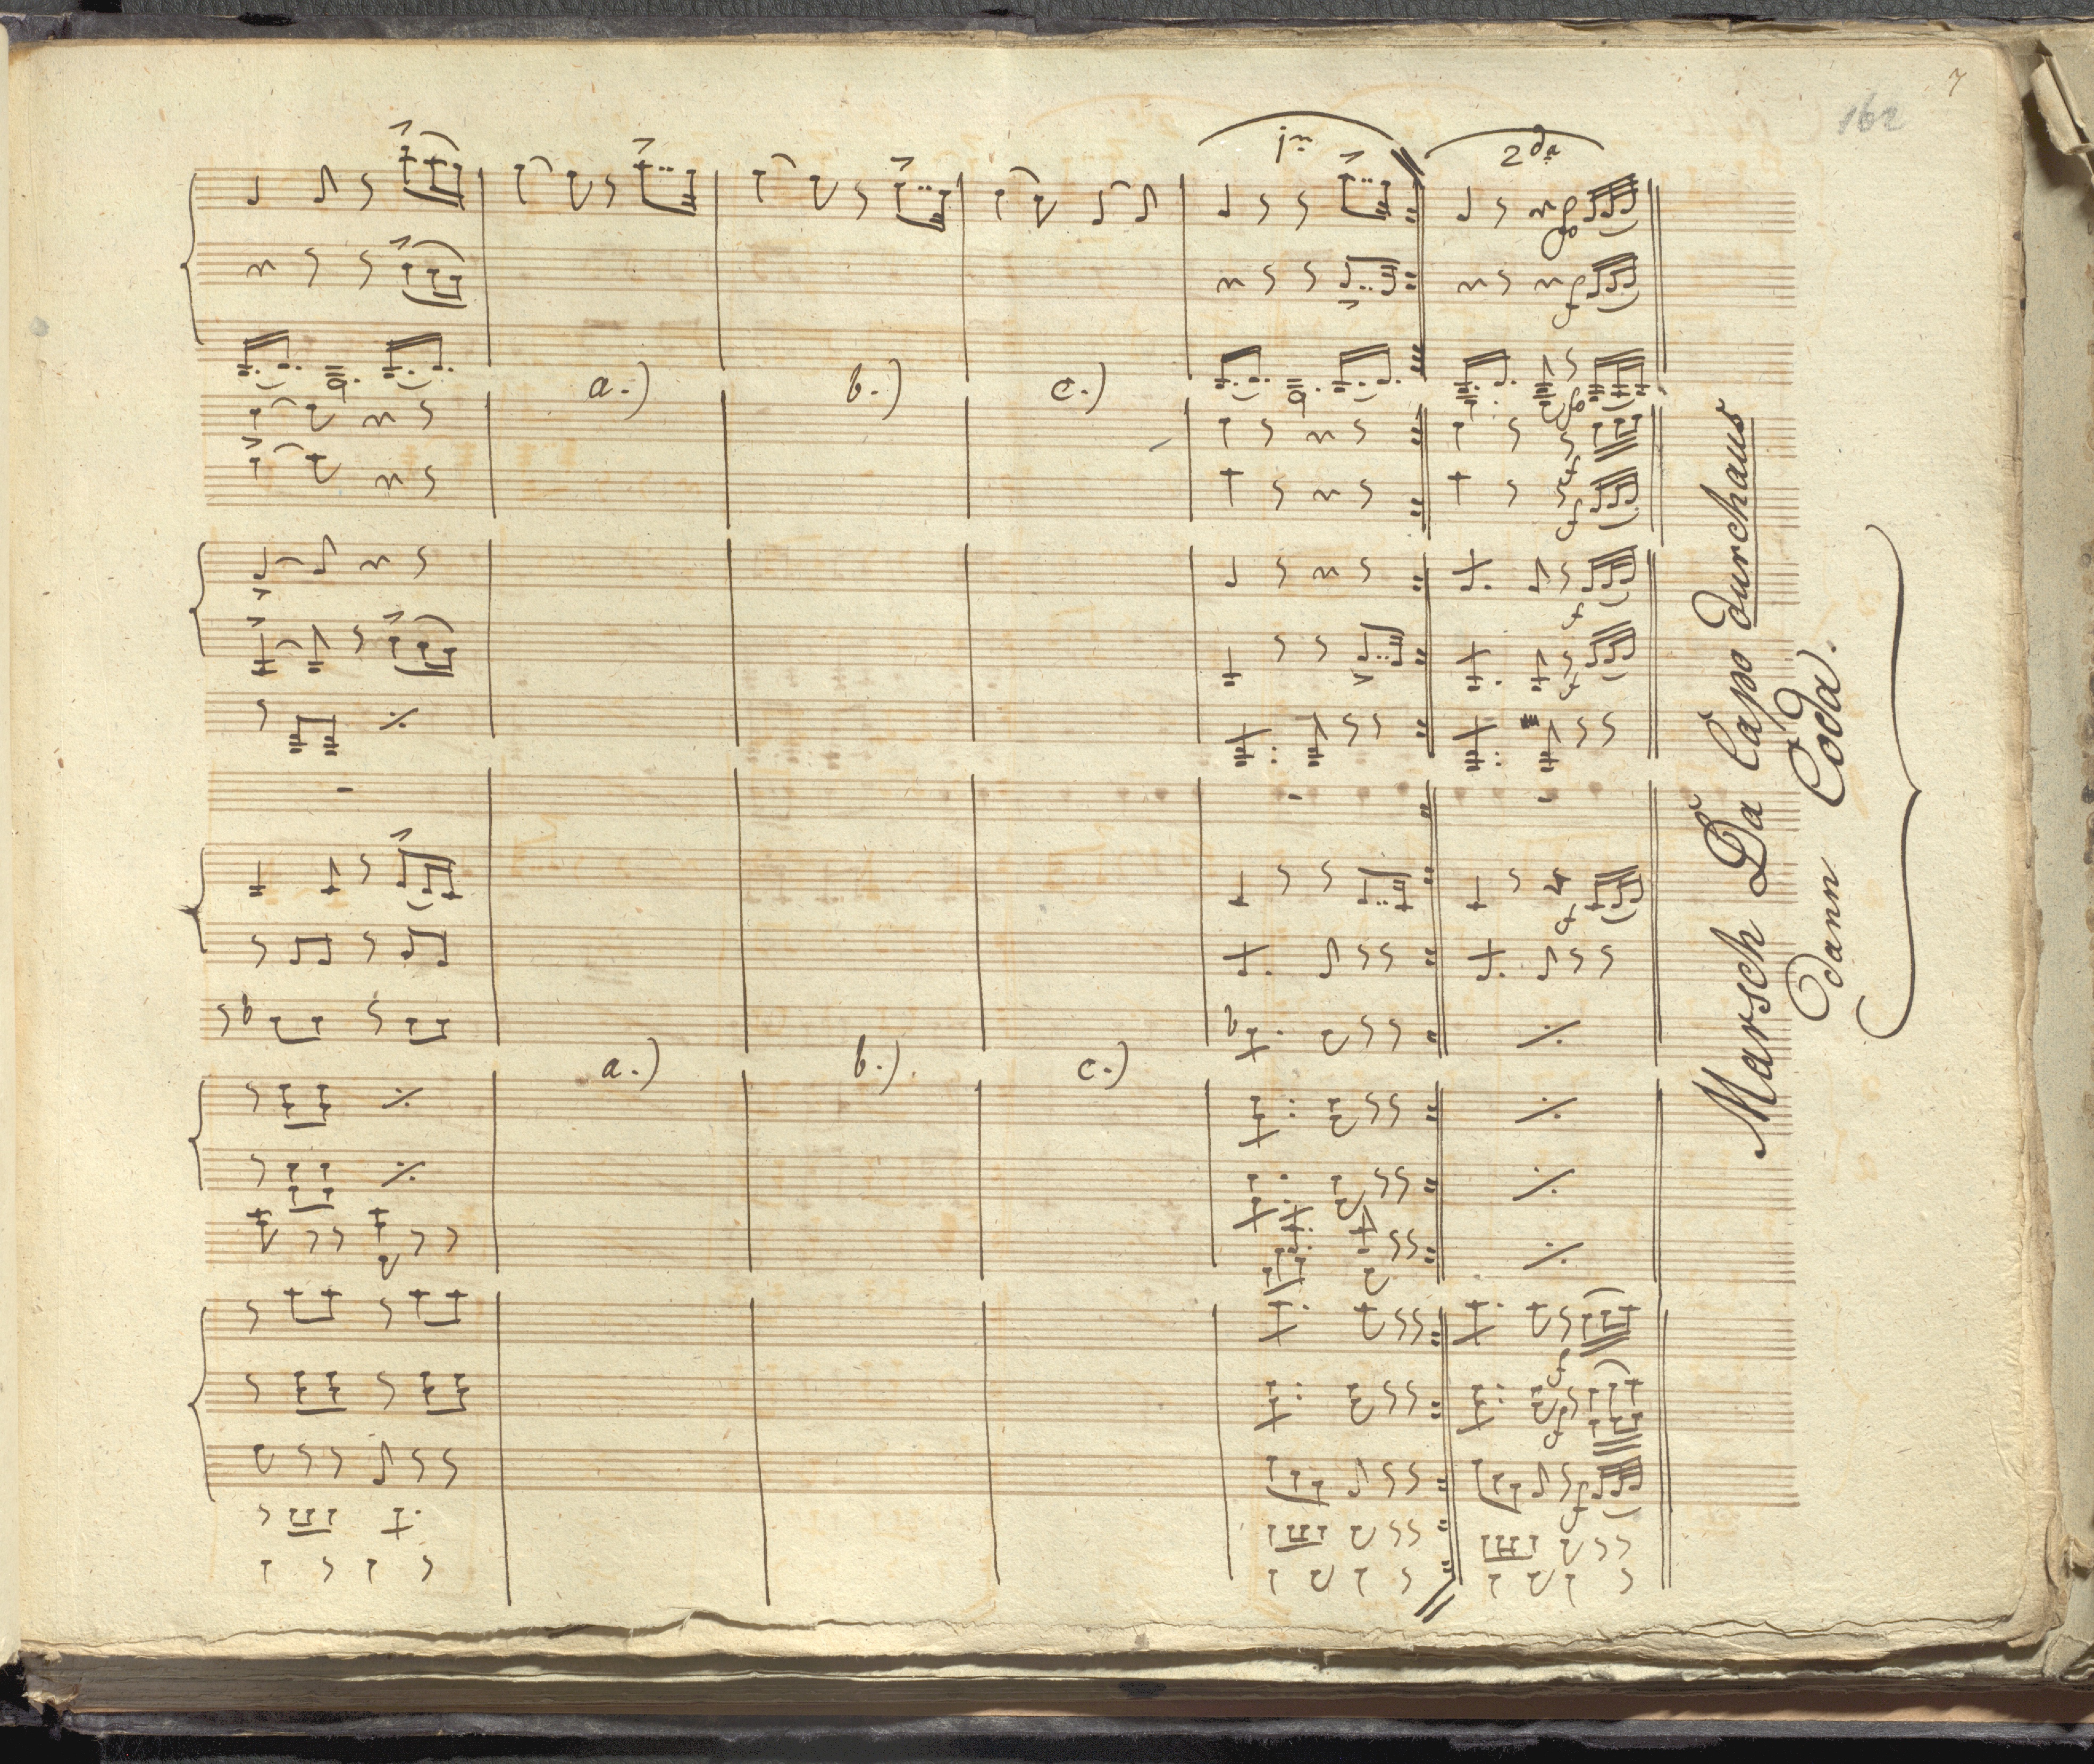 7
162
1ma
2da
mf
a.)
b.)
c.)
a.)
b.)
c.)
Marsch Da Capo durchaus
dann Coda.